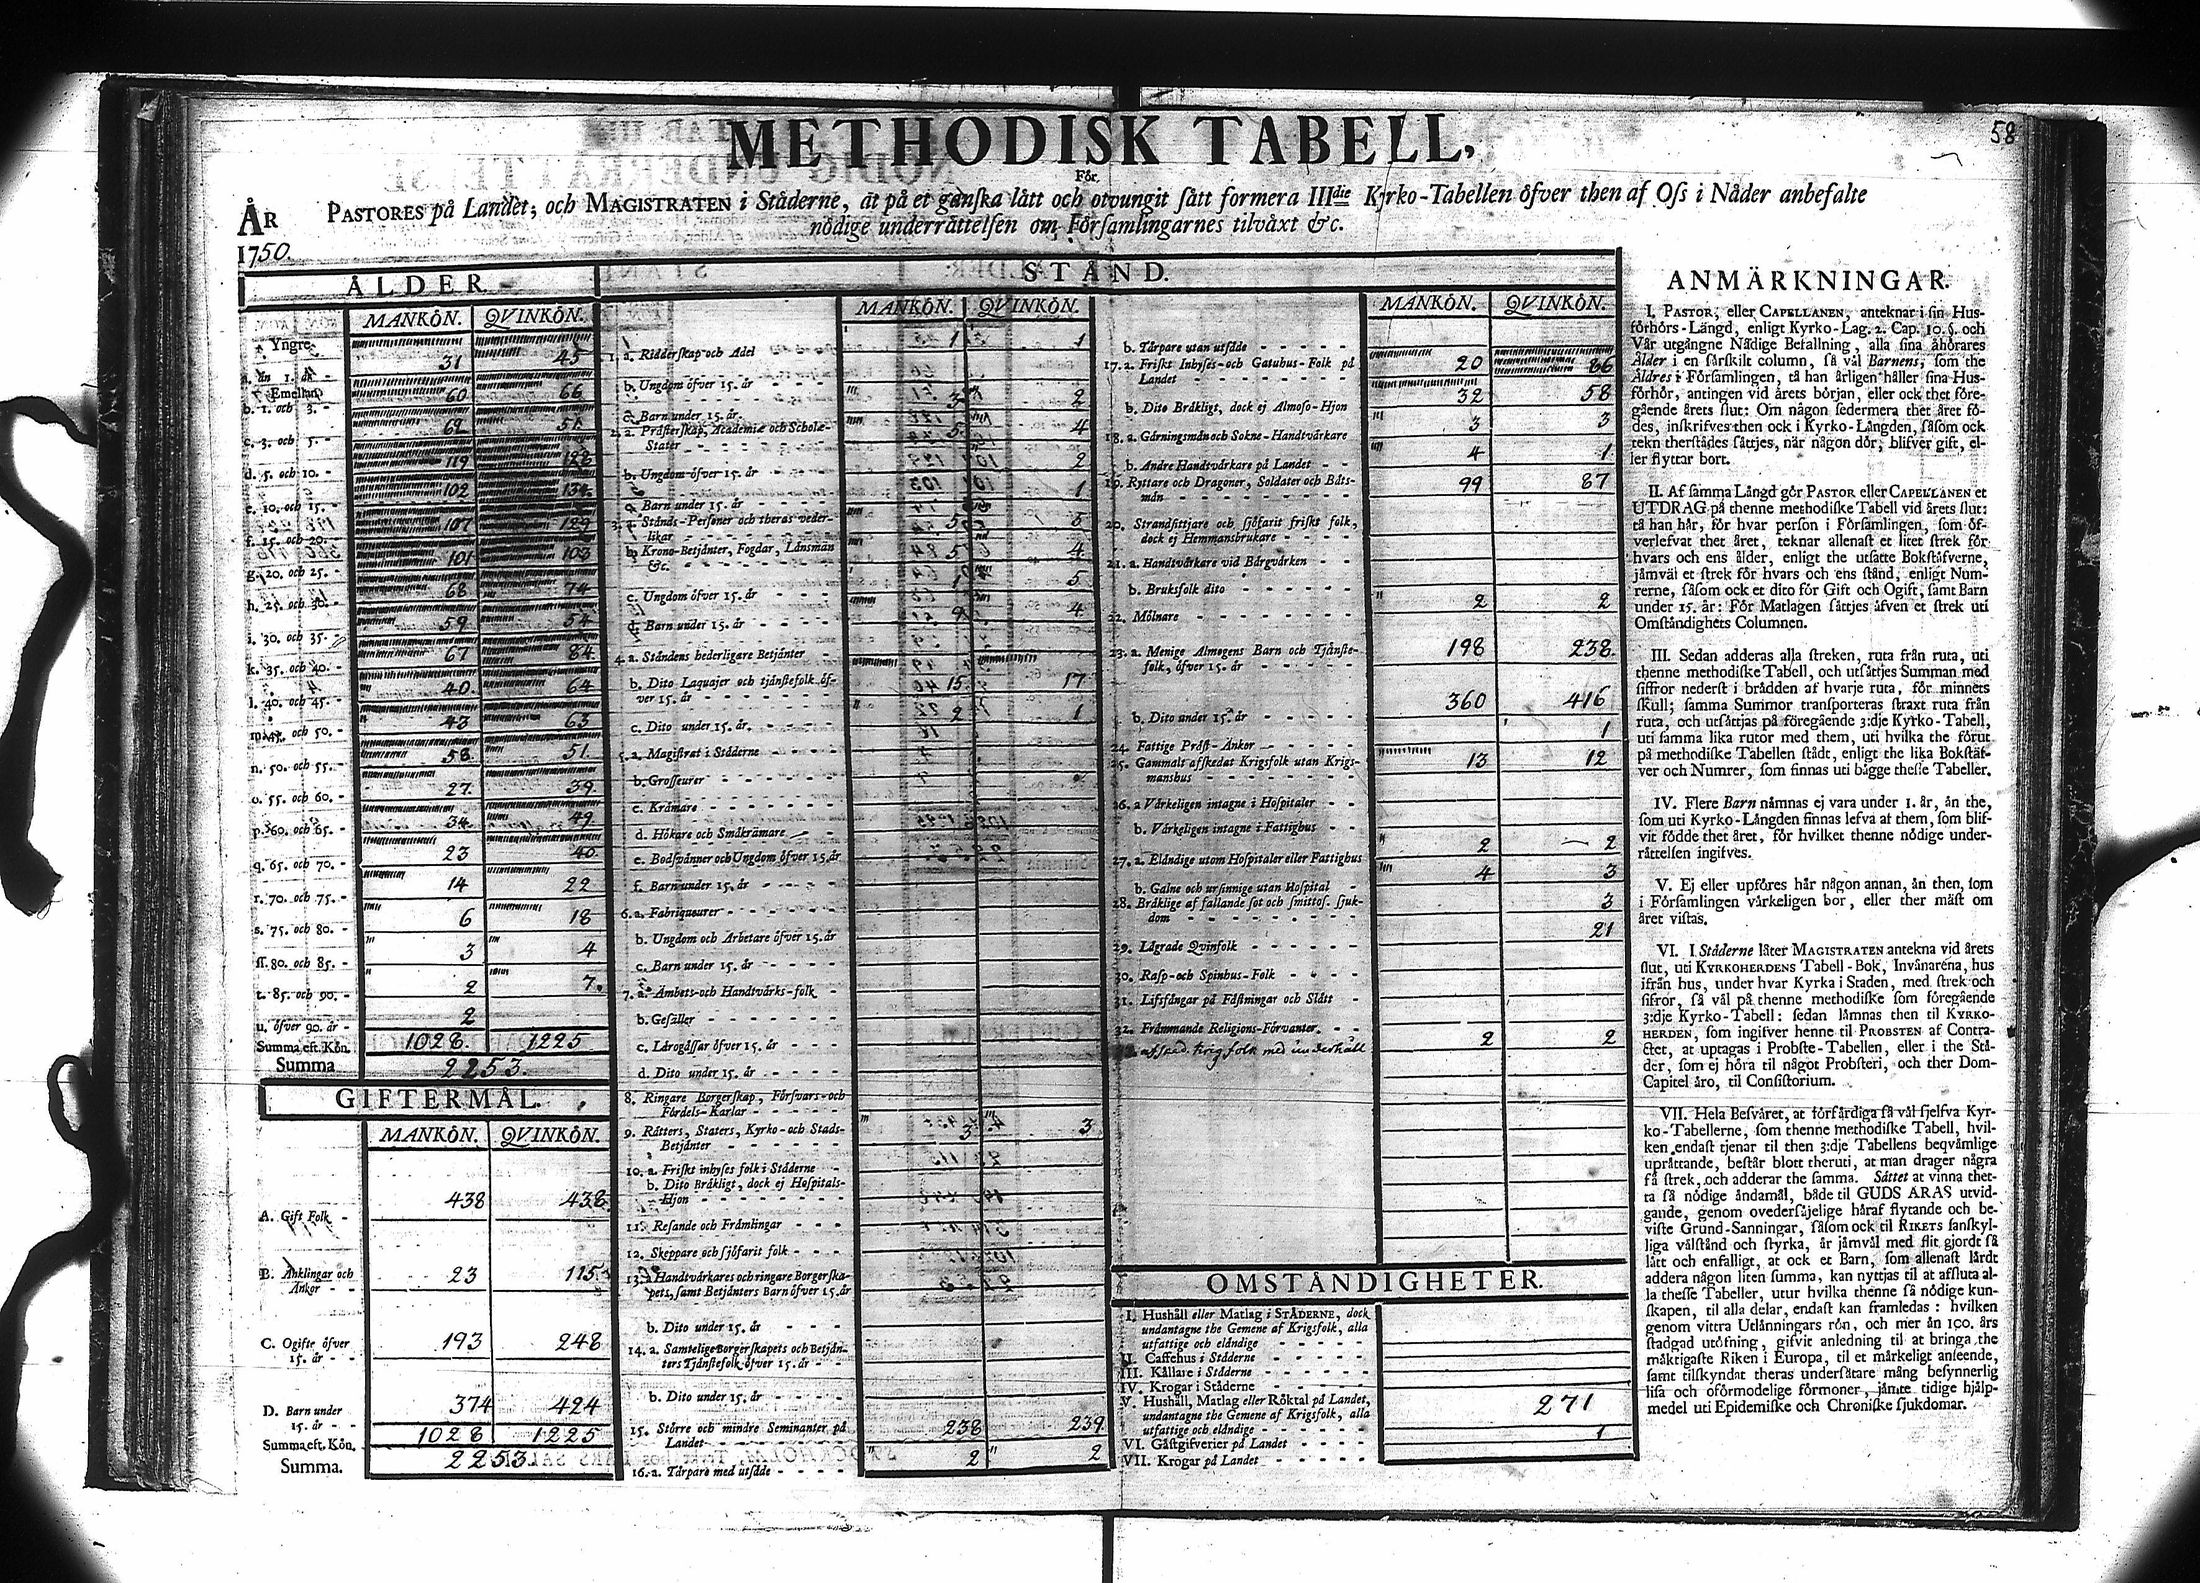 58
METHODISK TABELL,
För
ÅR PASTORES på Landet, och MAGISTRATEN i Städerne, at på et ganska lätt och otvungit sätt formera IIIdie Kyrko-Tabellen öfver then af Oss i Nåder anbefalte
1750. nödige underrättelsen om Församlingarnes tilväxt &c.
ÅLDER.
MANKÖN. QVINKÖN.
Yngre
a. än 1. år - 31 45
Emellan
b. 1. och 3. - 60 66
c. 3. och 5. - 62
d. 5. och 10. - 119
e. 10. och 15. - 102 134
f. 15. och 20. - 107 129
g. 20. och 25. - 101 103
h. 25. och 30. - 68 74
i. 30. och 35. - 59 54
k. 35. och 40. - 67 84
l. 40. och 45. - 40 64
m. 45. och 50. - 43 63
n. 50. och 55. - 58 51
o. 55. och 60. - 27 39
p. 60. och 65. - 34 49
q. 65. och 70. - 23 40
r. 70. och 75. - 14 22
s. 75. och 80. - 6 18
ſſ. 80. och 85. - 3 4
t. 85. och 90. - 2 7.
u. öfver 90. år - 2
Summa eft. Kön. 1028. 1225
Summa 2253.
GIFTERMÅL.
MANKÖN. QVINKÖN.
A. Gift Folk - 438 438
B. Änklingar och
Änkor - - 23 115
C. Ogifte öfver
15. år - - 193 248
D. Barn under
15. år - - 374 424
Summa eft. Kön. 1028 1225
Summa. 2253
STÅND.
MANKÖN. QVINKÖN.
1. a. Ridderskap och Adel 1 1
b. Ungdom öfver 15. år
c. Barn under 15. år 3 2
2. a. Prästerskap, Academiæ och Scholæ-
Stater 5 4
b. Ungdom öfver 15. år 2
c. Barn under 15. år 1
3. a. Stånds-Personer och theras veder-
likar 5 5
b. Krono-Betjänter, Fogdar, Länsmän
&c. 5 4
c. Ungdom öfver 15. år 1 5
d. Barn under 15. år 9 4
4. a. Ståndens hederligare Betjänter
b. Dito Laquajer och tjänstefolk öf-
ver 15. år 15 17
c. Dito under 15. år. 2 1
5. a. Magistrat i Städerne
b. Grosseurer
c. Krämare
d. Hökare och Småkrämare
e. Bodsvänner och Ungdom öfver 15. år
f. Barn under 15. år
6. a. Fabriqueurer
b. Ungdom och Arbetare öfver 15. år
c. Barn under 15. år
7. a. Ämbets- och Handtvärks-folk
b. Gesäller
c. Lärogåssar öfver 15. år
d. Dito under 15. år
8. Ringare Borgerskap, Försvars- och
Fördels-Karlar
9. Rätters, Staters, Kyrko- och Stads-
Betjänter 3 3
10. a. Friskt inhyses folk i Städerne
b. Dito Bräkligt, dock ej Hospitals-
Hjon
11. Resande och Främlingar
12. Skeppare och sjöfarit folk
13. a. Handtvärkares och ringare Borgerska-
pets, samt Betjänters Barn öfver 15. år
b. Dito under 15. år
14. a. Samtelige Borgerskapets och Betjän-
ters Tjänstefolk öfver 15. år
b. Dito under 15. år
15. Större och mindre Seminanter på
Landet 238 239
16. a. Torpare med utsäde 2 2
MANKÖN. QVINKÖN.
b. Torpare utan utsäde
17. a. Friskt Inhyses- och Gatuhus-Folk på
Landet 20 86
b. Dito Bräkligt, dock ej Almoso-Hjon 32 58
18. a. Gärningsmän och Sokne-Handtvärkare 3 3
b. Andre Handtvärkare på Landet 4 1
19. Ryttare och Dragoner, Soldater och Båts-
män 99 87
20. Strandsittjare och sjöfarit friskt folk,
dock ej Hemmansbrukare
21. a. Handtvärkare vid Bärgvärken
b. Bruksfolk dito
22. Mölnare 2 2
23. a. Menige Almogens Barn och Tjänste-
folk, öfver 15. år 198 238
b. Dito under 15. år 360 416
24. Fattige Präst-Änkor 1
25. Gammalt afskedat Krigsfolk utan Krigs-
manshus 13 12
26. a. Värkeligen intagne i Hospitaler
b. Värkeligen intagne i Fattighus
27. a. Eländige utom Hospitaler eller Fattighus 2 2
b. Galne och ursinnige utan Hospital 4 3
28. Bräklige af fallande sot och smittos. sjuk-
dom 3
29. Lägrade Qvinfolk 21
30. Rasp- och Spinhus-Folk
31. Lifsfångar på Fästningar och Slått
32. Främmande Religions-Förvanter.
afsked. krigsfolk med underhåll 2 2
OMSTÄNDIGHETER.
I. Hushåll eller Matlag i STÄDERNE, dock
undantagne the Gemene af Krigsfolk, alla
utfattige och eländige
II. Caffehus i Städerne
III. Källare i Städerne
IV. Krogar i Städerne
V. Hushåll, Matlag eller Röktal på Landet,
undantagne the Gemene af Krigsfolk, alla
utfattige och eländige 271
VI. Gästgifverier på Landet 1
VII. Krogar på Landet
ANMÄRKNINGAR.
I. PASTOR, eller CAPELLANEN, anteknar i sin Hus-
förhörs-Längd, enligt Kyrko-Lag. 2. Cap. 10. §. och
Vår utgångne Nådige Befallning, alla sina åhörares
Ålder i en särskilt column, så väl Barnens, som the
Äldres i Församlingen, tå han årligen håller sina Hus-
förhör, antingen vid årets början, eller ock thet före-
gående årets slut: Om någon sedermera thet året fö-
des, inskrifves then ock i Kyrko-Längden, såsom ock
tekn therstädes sättjes, när någon dör, blifver gift, el-
ler flyttar bort.
II. Af samma Längd gör PASTOR eller CAPELLANEN et
UTDRAG på thenne methodiske Tabell vid årets slut:
tå han här, för hvar person i Församlingen, som öf-
verlefvat thet året, teknar allenast et litet strek för
hvars och ens ålder, enligt the utsatte Bokstäfverne,
jämväl et strek för hvars och ens stånd, enligt Num-
rerne, såsom ock et dito för Gift och Ogift, samt Barn
under 15. år: För Matlagen sättjes äfven et strek uti
Omständighets Columnen.
III. Sedan adderas alla streken, ruta från ruta, uti
thenne methodiske Tabell, och utsättjes Summan med
siffror nederst i brädden af hvarje ruta, för minnets
skull; samma Summor transporteras straxt ruta från
ruta, och utsättjas på föregående 3:dje Kyrko-Tabell,
uti samma lika rutor med them, uti hvilka the förut
på methodiske Tabellen stådt, enligt the lika Bokstäf-
ver och Numrer, som finnas uti bägge thesse Tabeller.
IV. Flere Barn nämnas ej vara under 1. år, än the,
som uti Kyrko-Längden finnas lefva af them, som blif-
vit födde thet året, för hvilket thenne nödige under-
rättelsen ingifves.
V. Ej eller upföres här någon annan, än then, som
i Församlingen värkeligen bor, eller ther mäst om
året vistas.
VI. I Städerne låter MAGISTRATEN antekna vid årets
slut, uti KYRKOHERDENS Tabell-Bok, Invånarena, hus
ifrån hus, under hvar Kyrka i Staden, med strek och
sifror, så väl på thenne methodiske som föregående
3:dje Kyrko-Tabell: sedan lämnas then til KYRKO-
HERDEN, som ingifver henne til PROBSTEN af Contra-
ctet, at uptagas i Probste-Tabellen, eller i the Stä-
der, som ej höra til något Probsteri, och ther Dom-
Capitel äro, til Consistorium.
VII. Hela Besväret, at förfärdiga så väl sjelfva Kyr-
ko-Tabellerne, som thenne methodiske Tabell, hvil-
ken endast tjenar til then 3:dje Tabellens beqvämlige
uprättande, består blott theruti, at man drager några
få strek, och adderar the samma. Sättet at vinna thet-
ta så nödige ändamål, både til GUDS ÄRAS utvid-
gande, genom ovedersäjelige häraf flytande och be-
viste Grund-Sanningar, såsom ock til RIKETS sanskyl-
liga välstånd och styrka, är jämväl med flit gjordt så
lätt och enfalligt, at ock et Barn, som allenast lärdt
addera någon liten summa, kan nyttjas til at afsluta al-
la thesse Tabeller, utur hvilka thenne så nödige kun-
skapen, til alla delar, endast kan framledas: hvilken
genom vittra Utlänningars rön, och mer än 100. års
stadgad utöfning, gifvit anledning til at bringa the
mäktigaste Riken i Europa, til et märkeligt anseende,
samt tilskyndat theras undersåtare mång besynnerlig
lisa och oförmodelige förmoner, jämte tidige hjälp-
medel uti Epidemiske och Chroniske sjukdomar.